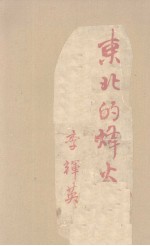 東北的烽火
李輝英